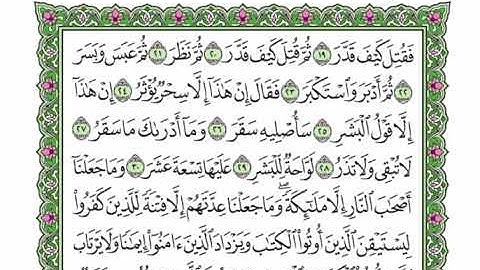 فَقُتِلَ كَيْفَ قَدَّرَ ١٩ ثُمَّ قُتِلَ كَيْفَ قَدَّرَ ٢٠ ثُمَّ نَظَرَ ٢١ ثُمَّ عَبَسَ وَبَسَرَ
٢٢ ثُمَّ أَدْبَرَ وَٱسْتَكْبَرَ ٢٣ فَقَالَ إِنْ هَٰذَآ إِلَّا سِحْرٌ يُؤْثَرُ ٢٤ إِنْ هَٰذَآ
إِلَّا قَوْلُ ٱلْبَشَرِ ٢٥ سَأُصْلِيهِ سَقَرَ ٢٦ وَمَآ أَدْرَىٰكَ مَا سَقَرُ ٢٧
لَا تُبْقِي وَلَا تَذَرُ ٢٨ لَوَّاحَةٌ لِّلْبَشَرِ ٢٩ عَلَيْهَا تِسْعَةَ عَشَرَ ٣٠ وَمَا جَعَلْنَآ
أَصْحَٰبَ ٱلنَّارِ إِلَّا مَلَٰٓئِكَةً ۙ وَمَا جَعَلْنَا عِدَّتَهُمْ إِلَّا فِتْنَةً لِّلَّذِينَ كَفَرُوا۟
لِيَسْتَيْقِنَ ٱلَّذِينَ أُوتُوا۟ ٱلْكِتَٰبَ وَيَزْدَادَ ٱلَّذِينَ ءَامَنُوٓا۟ إِيمَٰنًا وَلَا يَرْتَابَ